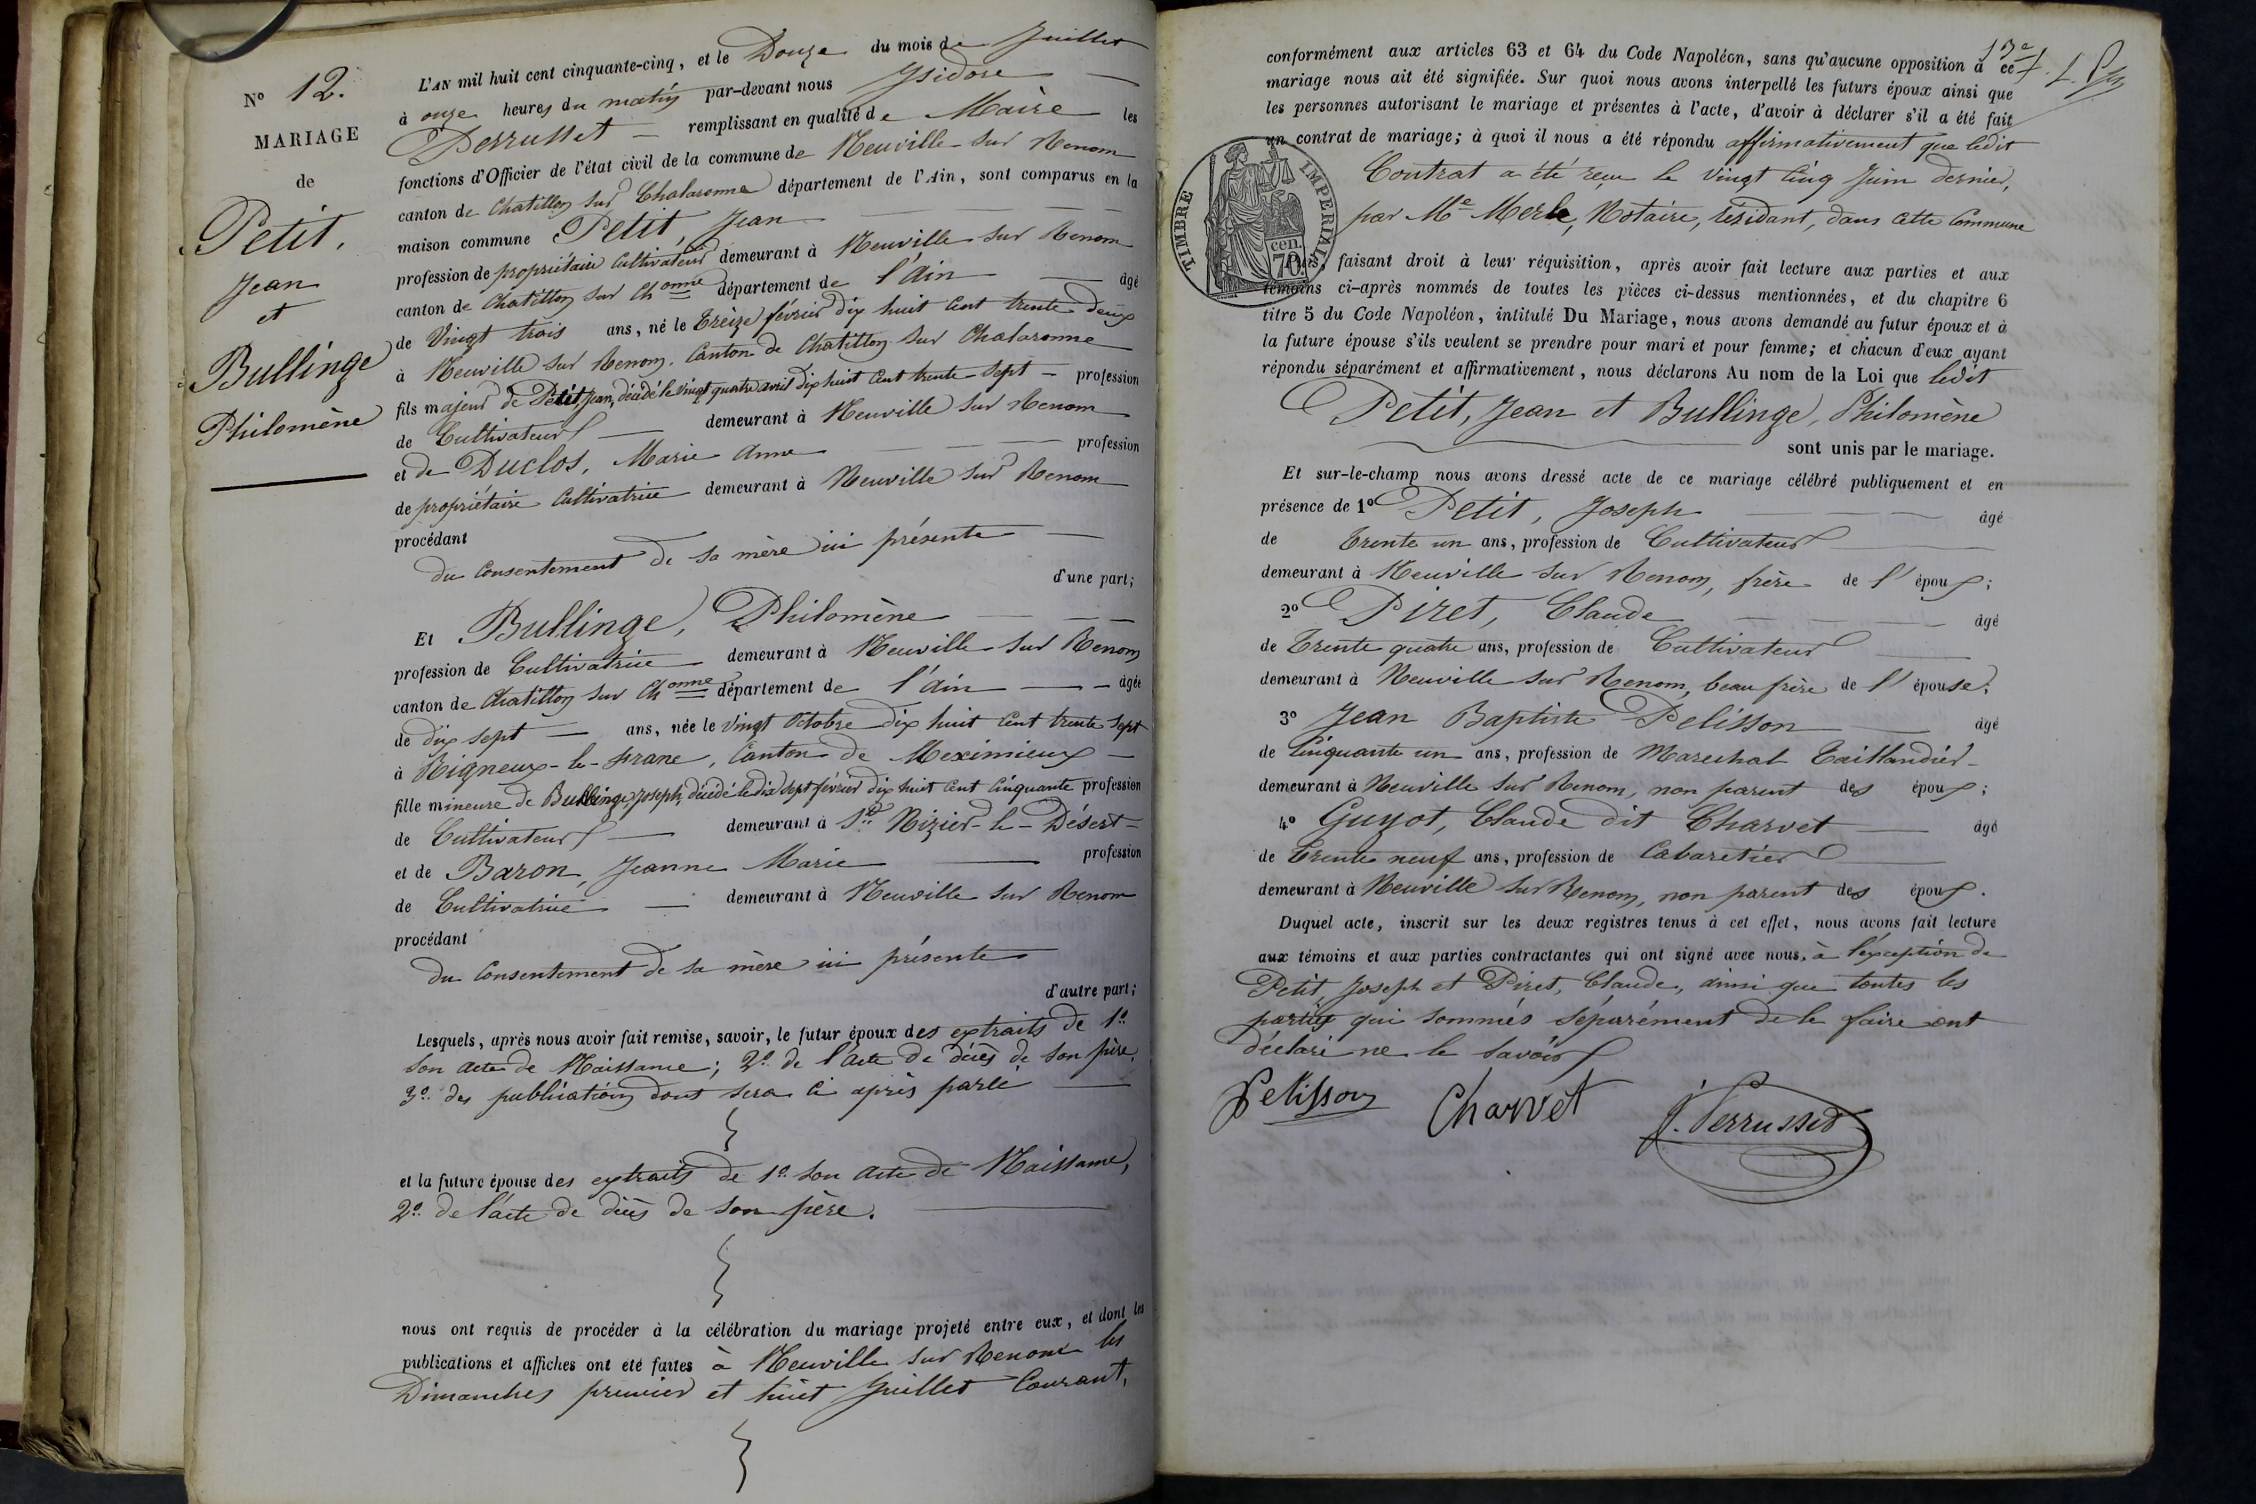 N° 12.
MARIAGE
de
Petit,
Jean
et
Bullinge
Philomène
L'AN mil huit cent cinquante-cinq, et le Douze du mois de Juillet
à onze heures du matin par-devant nous Ysidore
Perrusset remplissant en qualité de Maire les
fonctions d'Officier de l'état civil de la commune de Neuville sur Renom
canton de Chatillon sur Chalaronne département de l'Ain, sont comparus en la
maison commune Petit, Jean
profession de propriétaire Cultivateur demeurant à Neuville sur Renom
canton de Chatillon sur Chonne département de l'Ain âgé
de Vingt trois ans, né le Treize février dix huit cent trente deux
à Neuville sur Renom. Canton de Chatillon sur Chalaronne
fils majeur de Petit, Jean, décédé le vingt quatre avril dix huit cent trente sept profession
de Cultivateur demeurant à Neuville sur Renom
et de Duclos, Marie Anne profession
de propriétaire Cultivatrice demeurant à Neuville sur Renom
procédant
du Consentement de sa mère ici présente
d'une part;
Et Bullinge, Philomène
profession de Cultivatrice demeurant à Neuville sur Renom
canton de Chatillon sur Chonne département de l'Ain âgée
de dix sept ans, née le vingt Octobre dix huit cent trente sept
à Rigneux-le-Franc, Canton de Meximieux
fille mineure de Bullinge, Joseph, décédé le dix sept février dix huit cent cinquante profession
de Cultivateur demeurant à St Nizier-le-Désert
et de Baron, Jeanne Marie profession
de Cultivatrice demeurant à Neuville sur Renom
procédant
du Consentement de sa mère ici présente
d'autre part;
Lesquels, après nous avoir fait remise, savoir, le futur époux des extraits de 1°
son acte de Naissance; 2° de l'acte de décès de son père,
3° des publications dont sera ci après parlé
et la future épouse des extraits de 1° son acte de Naissance,
2° de l'acte de décès de son père.
nous ont requis de procéder à la célébration du mariage projeté entre eux, et dont les
publications et affiches ont été faites à Neuville sur Renom les
Dimanches premier et huit Juillet Courant,
13e f.
conformément aux articles 63 et 64 du Code Napoléon, sans qu'aucune opposition à ce
mariage nous ait été signifiée. Sur quoi nous avons interpellé les futurs époux ainsi que
les personnes autorisant le mariage et présentes à l'acte, d'avoir à déclarer s'il a été fait
un contrat de mariage; à quoi il nous a été répondu affirmativement que ledit
Contrat a été reçu le vingt cinq Juin dernier,
par Me Merle, Notaire, résidant, dans cette Commune
TIMBRE IMPERIAL
cen.
70
Nous, faisant droit à leur réquisition, après avoir fait lecture aux parties et aux
témoins ci-après nommés de toutes les pièces ci-dessus mentionnées, et du chapitre 6
titre 5 du Code Napoléon, intitulé Du Mariage, nous avons demandé au futur époux et à
la future épouse s'ils veulent se prendre pour mari et pour femme; et chacun d'eux ayant
répondu séparément et affirmativement, nous déclarons Au nom de la Loi que ledit
Petit, Jean et Bullinge, Philomène
sont unis par le mariage.
Et sur-le-champ nous avons dressé acte de ce mariage célébré publiquement et en
présence de 1° Petit, Joseph âgé
de Trente un ans, profession de Cultivateur
demeurant à Neuville sur Renom, frère de l'époux;
2° Piret, Claude âgé
de Trente quatre ans, profession de Cultivateur
demeurant à Neuville sur Renom, beau frère de l'épouse;
3° Jean Baptiste Pelisson âgé
de Cinquante un ans, profession de Marechal Taillandier
demeurant à Neuville sur Renom, non parent des époux;
4° Guyot, Claude dit Charvet âgé
de Trente neuf ans, profession de Cabaretier
demeurant à Neuville sur Renom, non parent des époux.
Duquel acte, inscrit sur les deux registres tenus à cet effet, nous avons fait lecture
aux témoins et aux parties contractantes qui ont signé avec nous, à l'exception de
Petit, Joseph et Piret, Claude, ainsi que toutes les
parties qui sommés séparément de le faire ont
déclaré ne le savoir
Pelisson Charvet J. Perrusset